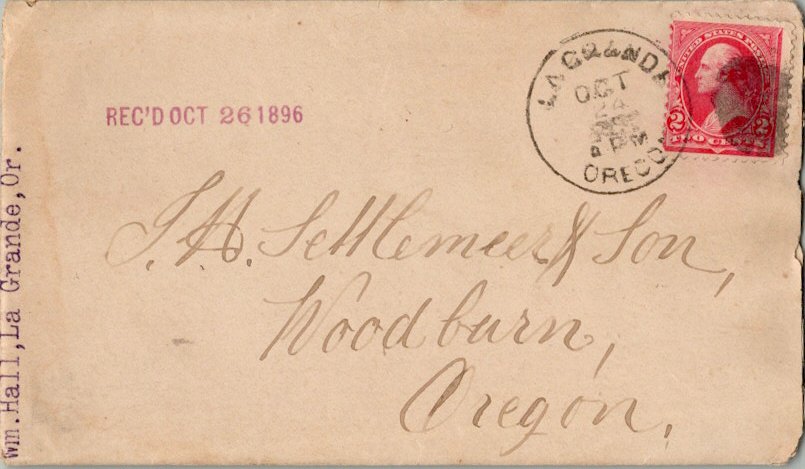 REC'D OCT 26 1896
LA GRANDE
OCT
24
OREGON
UNITED STATES POSTAGE
2 2
TWO CENTS
J. H. Settlemeer & Son,
Woodburn,
Oregon.
Wm. Hall, La Grande, Or.